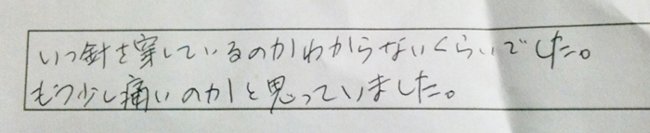 いつ針を穿しているのかわからないくらいでした。
もう少し痛いのかと思っていました。